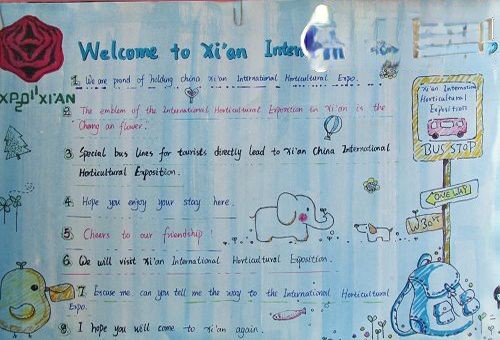 Welcome to Xi'an
XI'AN
1. We are proud of holding china Xi'an International Horticultural Expo.
2. The emblem of the International Horticultural Exposition in Xi'an is the
Chang'an flower.
3. Special bus lines for tourists directly lead to Xi'an China International
Horticultural Exposition.
4. Hope you enjoy your stay here.
5. Cheers to our friendship!
6. We will visit Xi'an International Horticultural Exposition.
7. Excuse me. can you tell me the way to the International Horticultural
Expo.
8. I hope you will come to Xi'an again.
Xi'an International
Horticultural
Exposition
BUS STOP
ONE WAY